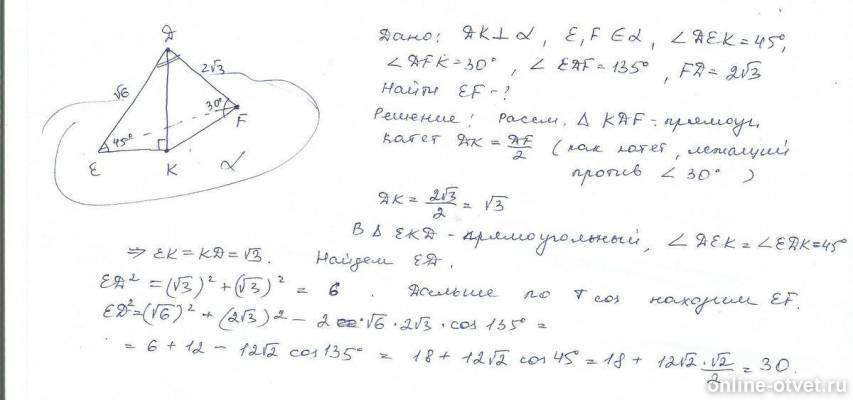 Д
√6
2√3
30°
F
45°
E
K
α
Дано: ДK⊥α, E,F∈α, ∠ДEK=45°,
∠ДFK=30°, ∠EДF=135°, FД=2√3
Найти EF-?
Решение: Рассм. Δ KДF- прямоуг.
катет ДK = ДF/2 (как катет, лежащий
против ∠30°)
ДK = 2√3/2 = √3
В Δ EKД - прямоугольный, ∠ДEK=∠EДK=45°
⇒ EK=KД=√3. Найдем EД.
EД²=(√3)²+(√3)² = 6. Дальше по т cos находим EF.
EД²=(√6)²+(2√3)²-2·√6·2√3·cos135°=
=6+12-12√2 cos135° = 18+12√2 cos45°=18+12√2·√2/2=30.
online-otvet.ru